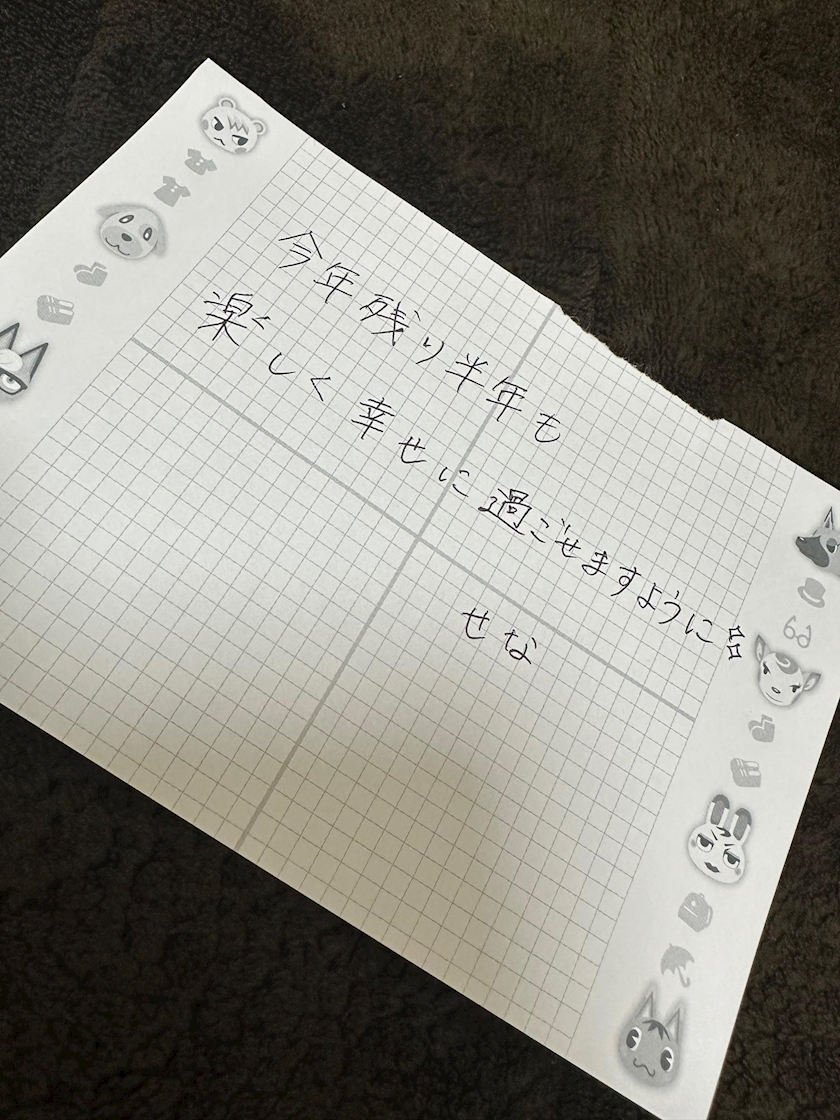 今年残り半年も
楽しく幸せに過ごせますように
せな